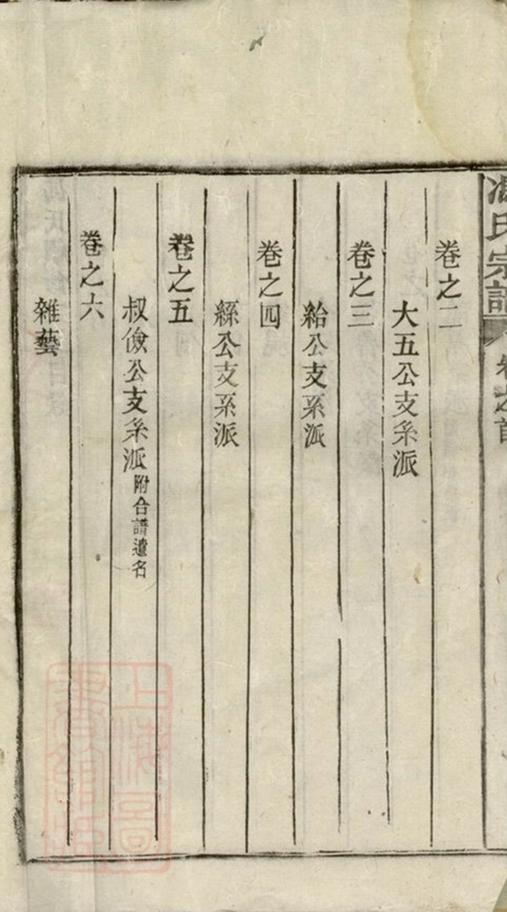 馮氏宗譜
卷之首
卷之二
大五公支系派
卷之三
給公支系派
卷之四
縣公支系派
卷之五
叔儉公支系派附合譜遺名
卷之六
雜藝
上海圖